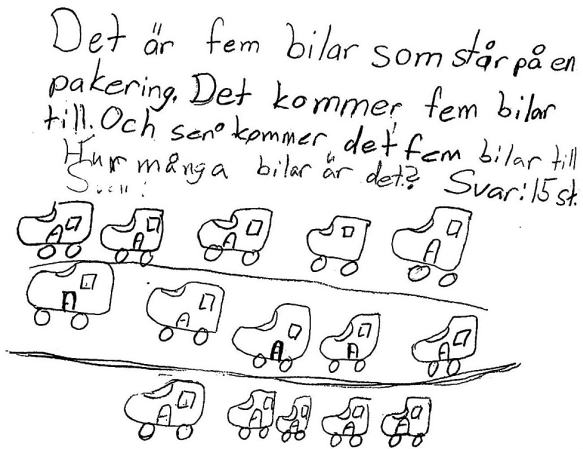 Det är fem bilar som står på en
pakering. Det kommer fem bilar
till. Och sen kommer det fem bilar till
Hur många bilar är det? Svar: 15 st.
S
A
A
A
A
A
A
A
A
A
A
A
A
A
A